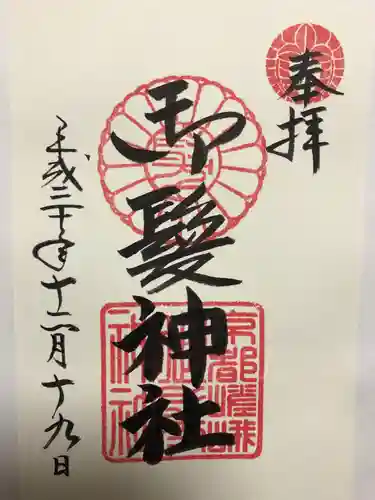 奉拝
御髪神社
平成三十年十二月十九日
京都嵯峨